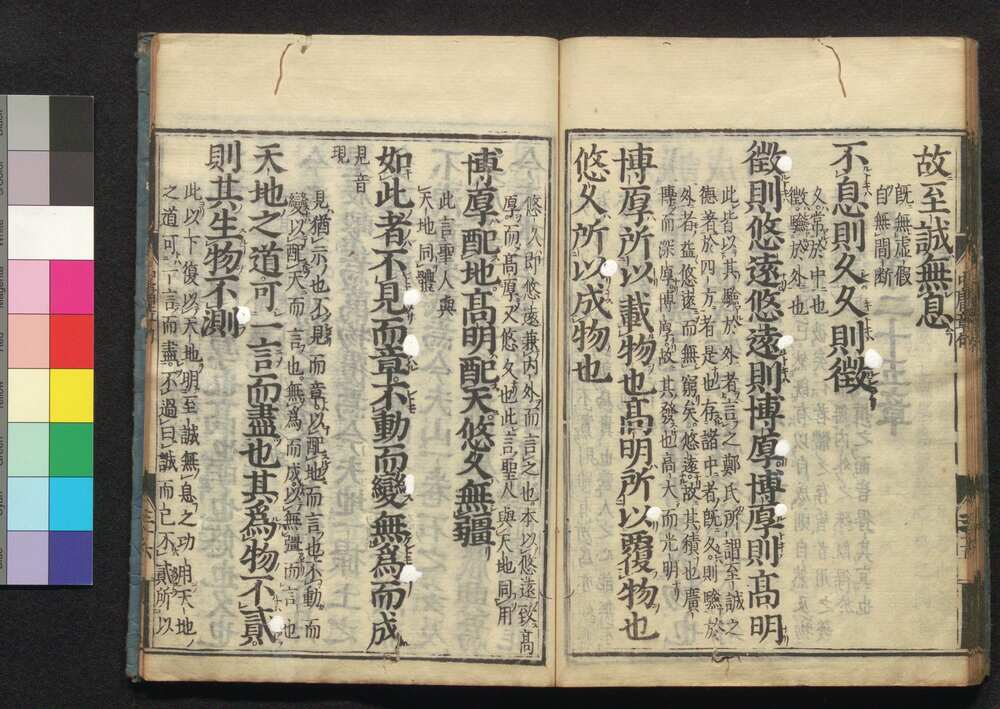 故至誠無息
既無虛假
自無間斷
不息則久久則徵
久常於中也
徵驗於外也
徵則悠遠悠遠則博厚博厚則高明
此皆以其驗於外者言之鄭氏所謂至誠之
德者於四方者是也存諸中者既久則驗於
外者益悠遠而無窮矣悠遠故其積也廣
博而深厚博厚故其發也高大而光明
博厚所以載物也高明所以覆物也
悠久所以成物也
悠久即悠遠兼內外而言之也本以悠遠致高
厚而高厚又悠久也此言聖人與天地同用
博厚配地高明配天悠久無疆
此言聖人與
天地同體
如此者不見而章不動而變無爲而成
見音
現
見猶示也不見而章以配地而言也不動而
變以配天而言也無爲而成以無疆而言也
天地之道可一言而盡也其爲物不貳
則其生物不測
此以下復以天地明至誠無息之功用天地
之道可一言而盡不過曰誠而已不貳所以